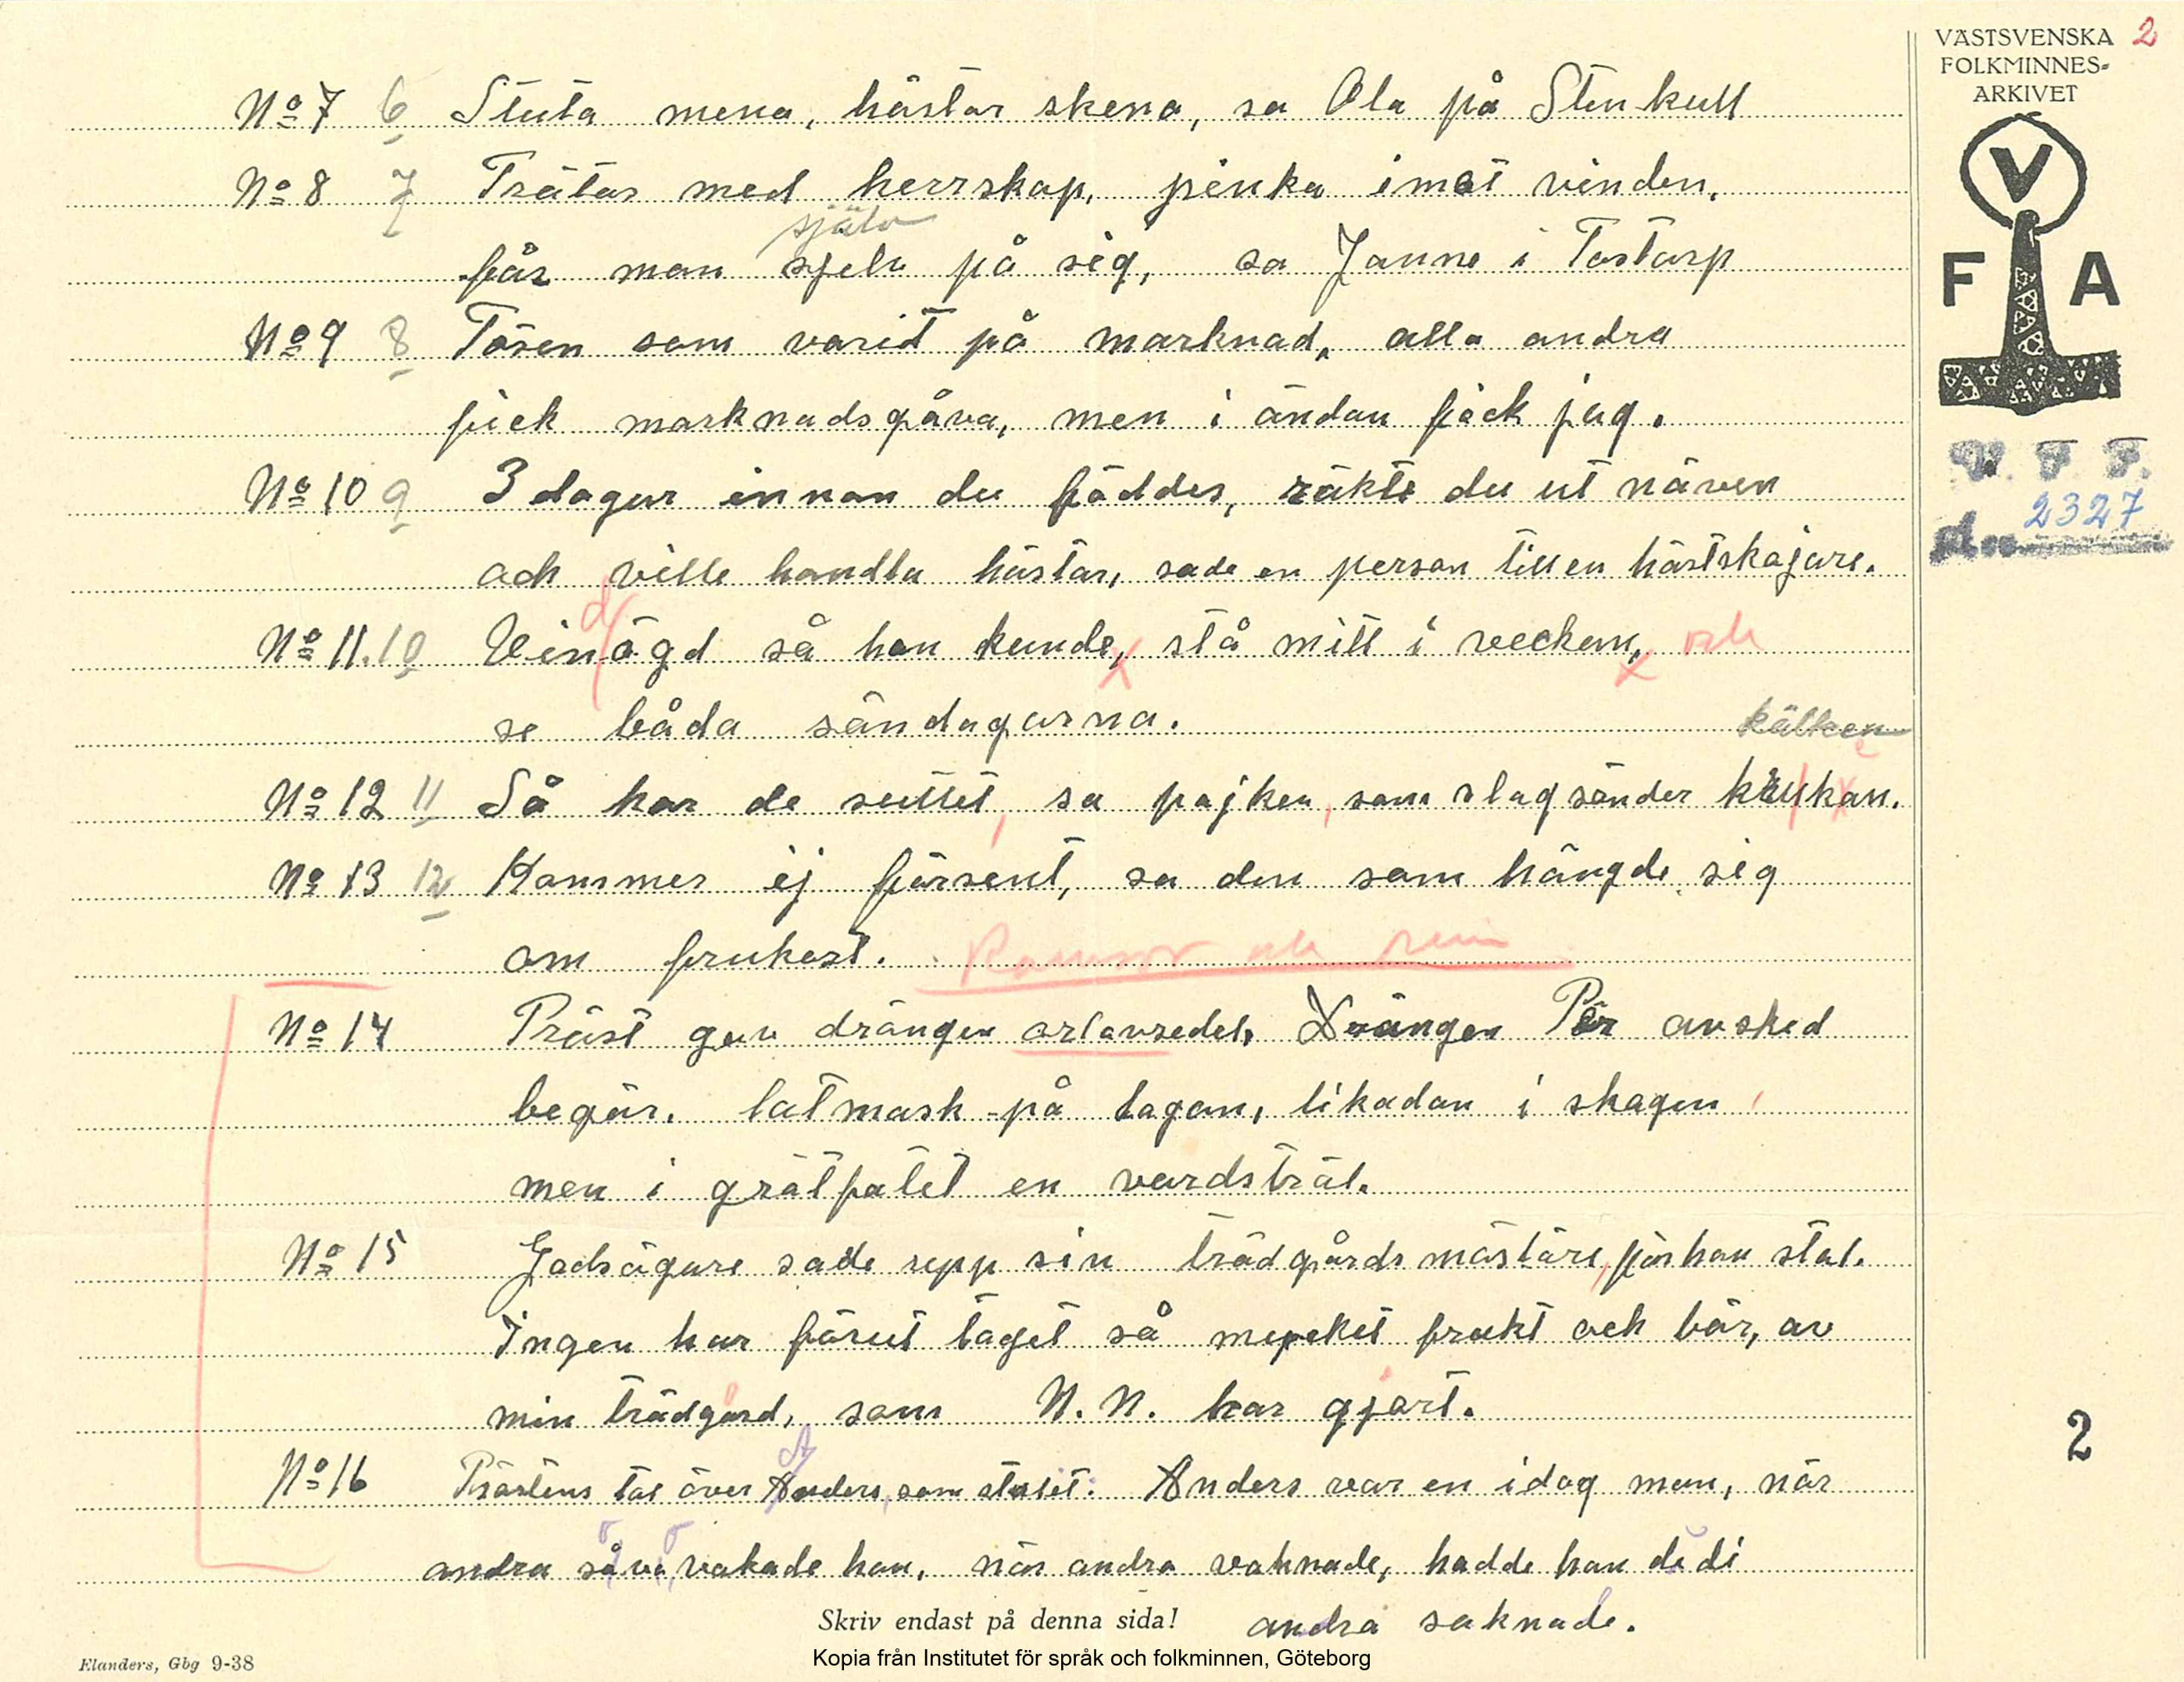 VÄSTSVENSKA 2
FOLKMINNES-
ARKIVET
V
F A
V. F. F.
2327
No 7 6 Stuta mena, hästar skena, sa Ola på Stenkull
No 8 7 Trätas med herrskap, pinka imot vinden,
själv
får man sjelv på sig, sa Janne i Tostarp
No 9 8 Tösen som varit på marknad, alla andra
fick marknadsgåva, men i ändan fick jag.
No 10 9 3 dagar innan du föddes, räkte du ut näven
och ville handla hästar, sade en person till en hästskojare.
d
No 11. 10 Vinögd så han kunde, stå mitt i veckan, och
se båda söndagarna.
kälken
No 12 11 Så har de suttet, sa pojken, som slog sönder krukan.
No 13 12 Kommer ej försent, sa den som hängde sig
om frukost. Ramsor och rim
No 14 Präst gav drängen orlovsedel, Drängen Pär avsked
begär. latmask på logen, likadan i skogen
men i grötfatet en vardsträl.
No 15 Godsägare sade upp sin trädgårdsmästäre, för han stal.
Ingen har förut taget så mycket frukt och bär, av
min trädgård, som N. N. har gjort.
A
No 16 Prästens tal över Anders, som stulit: Anders var en idog man, när
andra såvo, vakade han, när andra vaknade, hadde han de di
andra saknade.
Skriv endast på denna sida!
2
Elanders, Gbg 9-38
Kopia från Institutet för språk och folkminnen, Göteborg